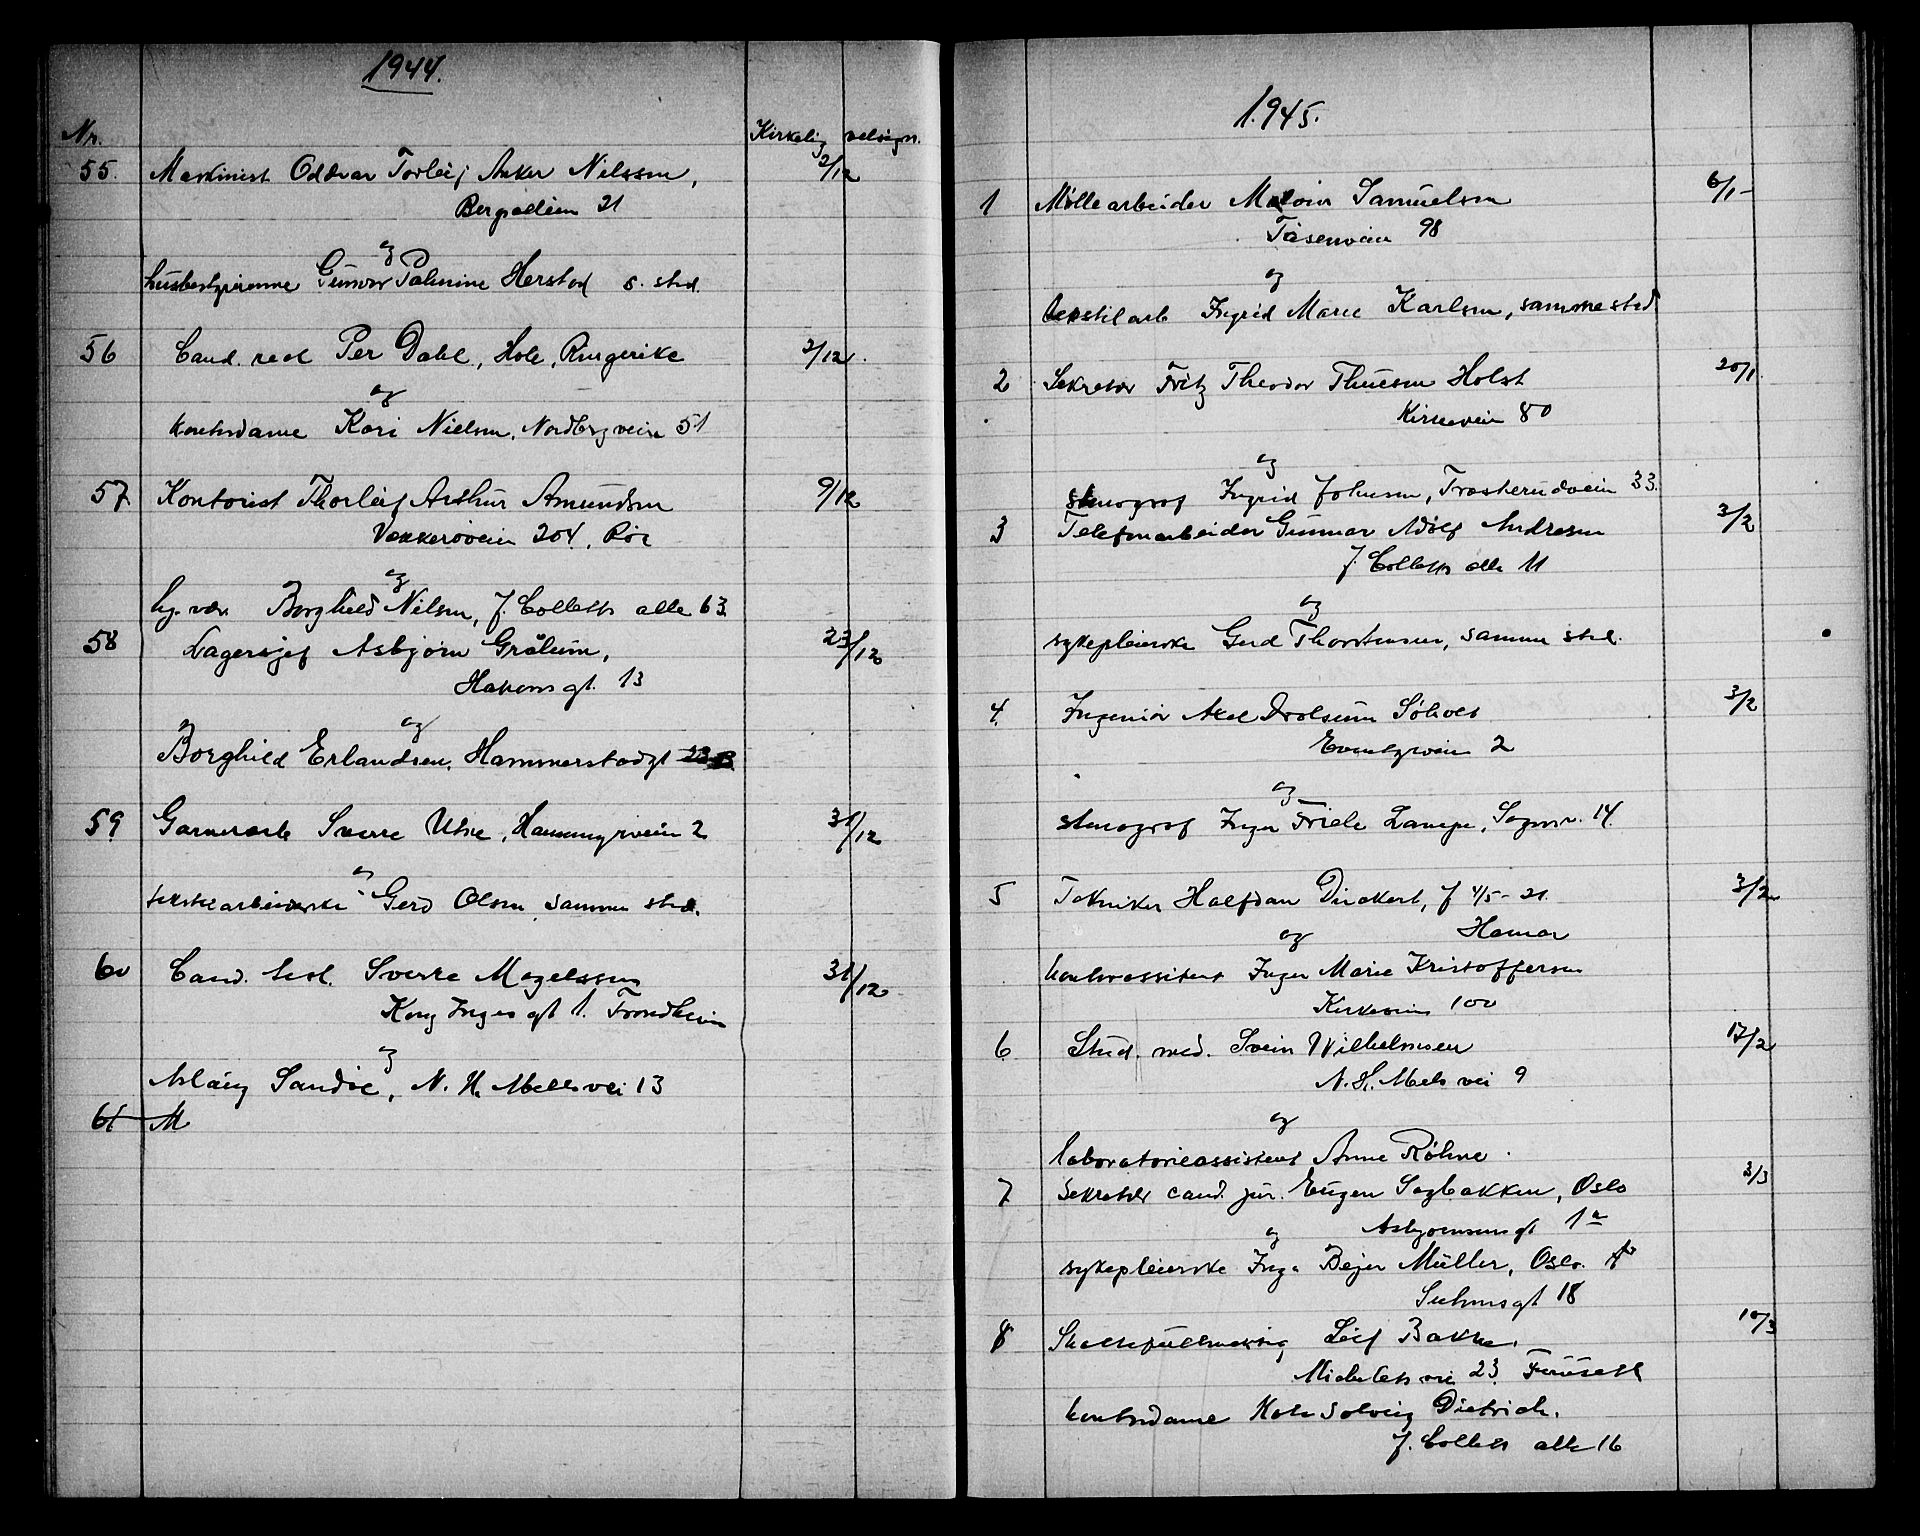 1944.
Nr. Kirkelig velsign.
55. Maskinist Oddvar Torleif Anker Nilssen, 2/12
21
og
Gunvor Palmine Herstad s. sted.
56 Cand. real Per Dahl, Hole, Ringerike 2/12.
og
kontordame Kari Nielsen, Nordbergveien 51
57 Kontorist Thorleif Arthur Amundsen 9/12
Vækkerøveien 204, Røa
og
Borghild Nilsen, J. Colletts alle 63.
58 Lagersjef Asbjørn Grålum, 23/12
Hakons gt. 13
og
Borghild Erlandsen, Hammerstadgt
59 Sverre Utne, 2 31/12
og
tekstilarbeiderske Gerd Olsen samme sted.
60 Cand. Sverre Magelssen 31/12
Kong Inges gt 1. Trondheim
og
Aslaug Sandøe, N. H. vei 13
61 M
1945.
1 Møllearbeider Malvin Samuelsen 6/1-
Tåsenveien 98
og
tekstilarb Ingrid Marie Karlsen, sammested
2 Sekretær Fritz Theodor Thuesen Holst 20/1
Kirkeveien 80
og
stenograf Ingrid Johnsen, Trosterudveien 33.
3 Telefonarbeider Gunnar Adolf Andresen 3/2
J. Colletts alle 11
og
sykepleierske Gerd Thorstensen, samme sted.
4. Ingeniør Axel Drolsum Sølvet 3/2
2
og
stenograf Inger Friele Lampe, Sognsv. 14.
5 Tekniker Halfdan Dirckert, f 4/5-21. 3/2
og Hamar
kontorassistent Inger Marie Kristoffersen
Kirkeveien 100
6 Stud. med. Svein Wilhelmsen 17/2
N. H. vei 9
og
laboratorieassistent Anne Røhne.
7 Sekretær cand. jur. Eugen Sagbakken, Oslo 3/3
og Asbjørnsensgt 1a
sykepleierske Inga Bejer Müller, Oslo.
Suhmsgt 18
8 Skattefullmektig Leif Bakke. 10/3
Michelets vei 23. Furuseth
kontordame Solveig Dietrich.
J. Colletts alle 16